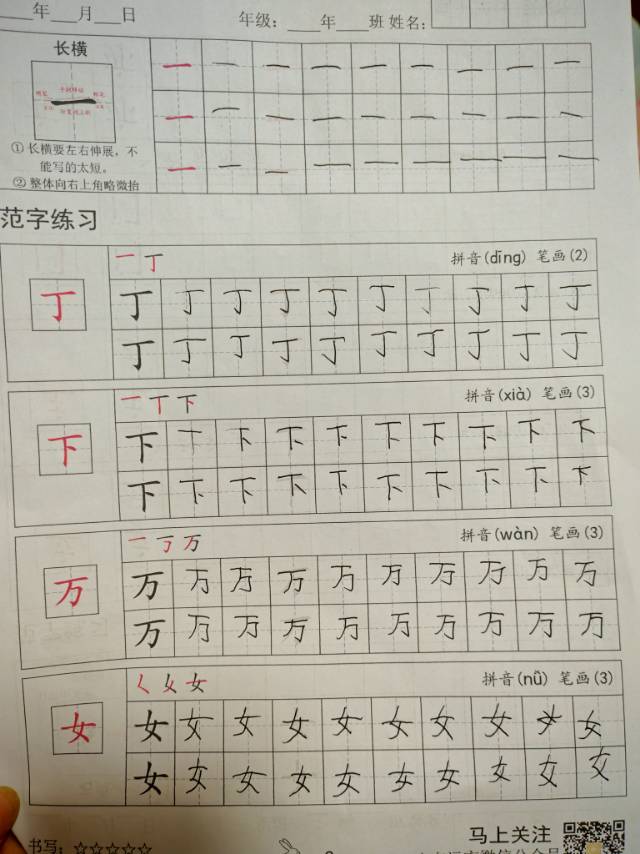 年 月 日 年级: 年 班 姓名:
长横
一 一 一 一 一 一 一 一 一
一 一 一 一 一 一 一 一 一
一 一 一 一 一 一 一 一 一
① 长横要左右伸展，不
能写的太短。
② 整体向右上角略微抬
范字练习
一 丁 拼音(dīng) 笔画(2)
丁
丁 丁 丁 丁 丁 丁 丁 丁 丁 丁
丁 丁 丁 丁 丁 丁 丁 丁 丁 丁
一 丅 下 拼音(xià) 笔画(3)
下
下 丅 下 下 下 下 下 下 下 下
下 下 下 下 下 下 下 下 下 下
一 丁 万 拼音(wàn) 笔画(3)
万
万 万 万 万 万 万 万 万 万 万
万 万 万 万 万 万 万 万 万 万
ㄑ 乂 女 拼音(nǚ) 笔画(3)
女
女 女 女 女 女 女 女 女 女 女
女 女 女 女 女 女 女 女 女 女
书写: ☆☆☆☆☆
马上关注